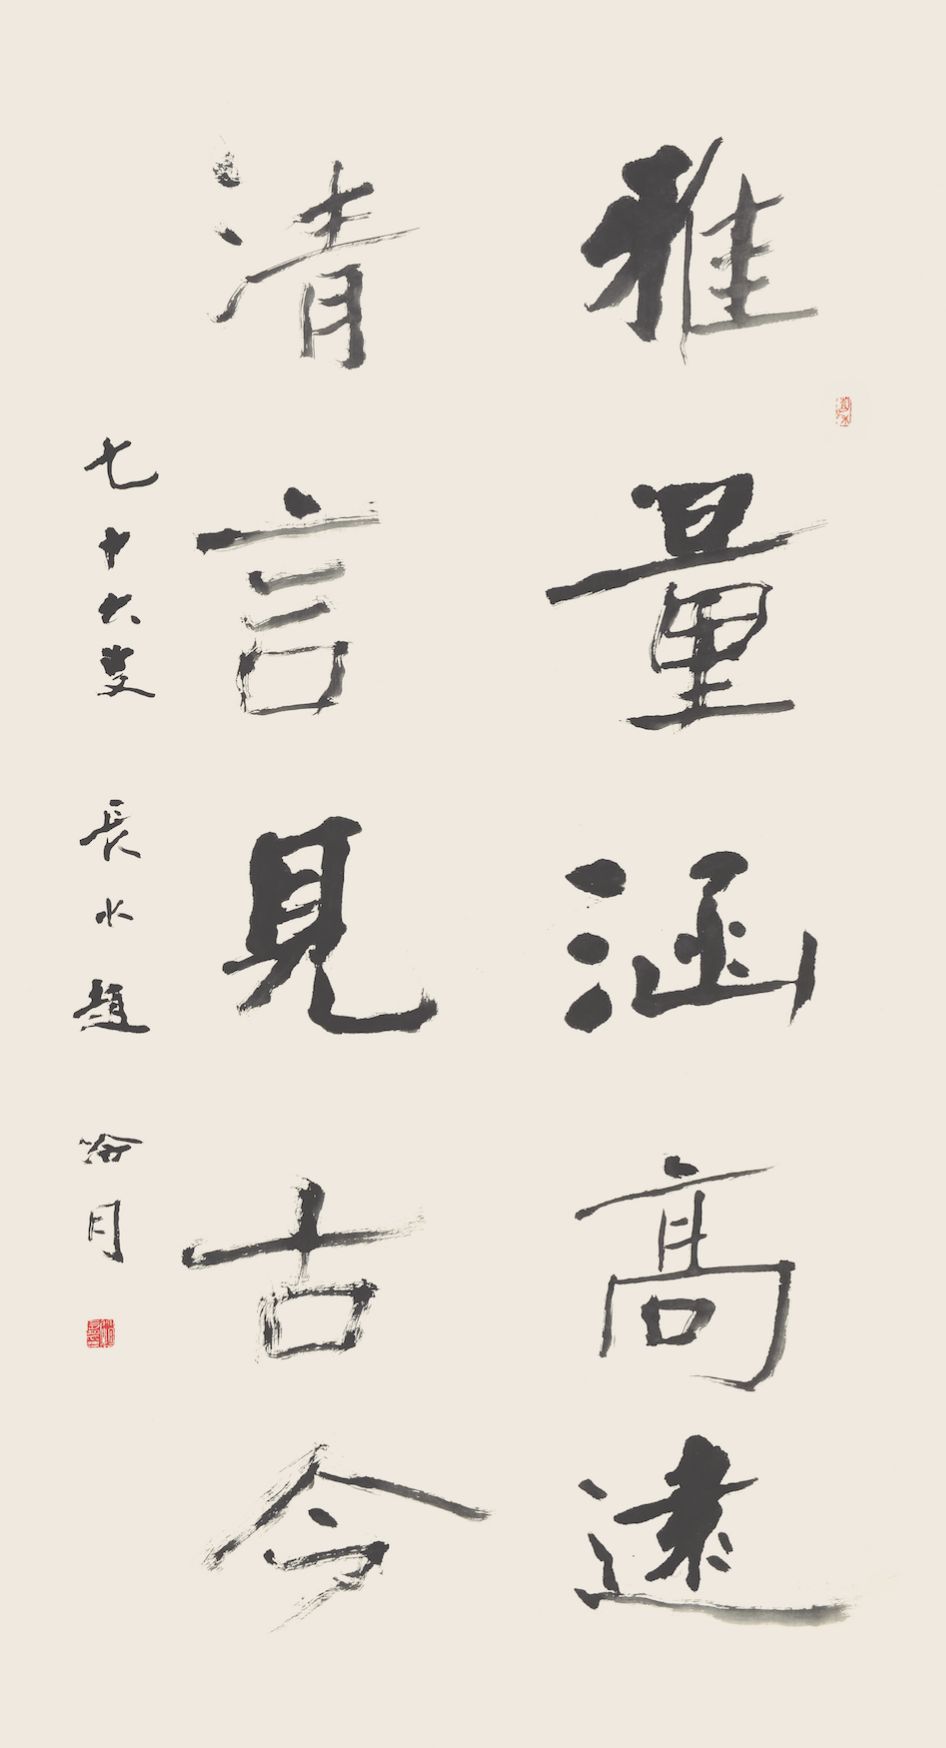 雅量涵高遠
清言見古今
七十六叟 長水 趙冷月